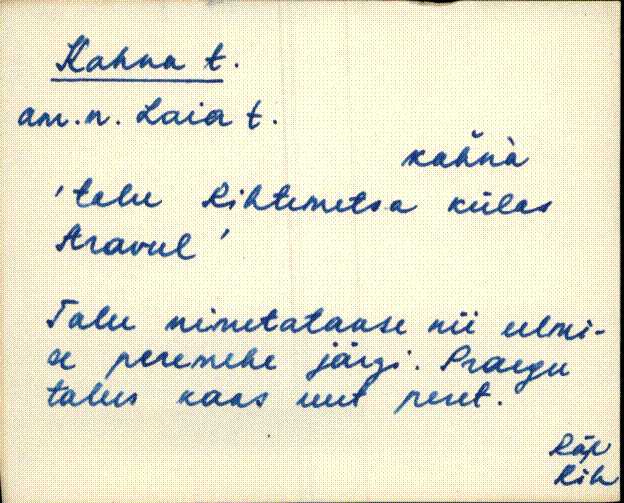 Kahna t.
am.n. Laia t.
kahnà
'talu Kihtemetsa külas
Aravul'
Talu nimetataase nii eelmi-
se peremehe järgi. Praegu
talus kaas uut peret.
Räp
Rih